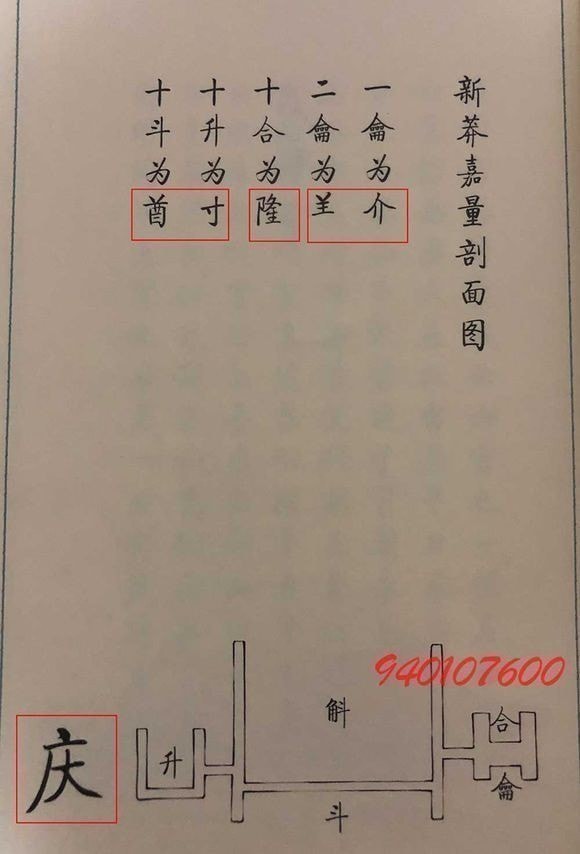 新莽嘉量剖面图
一龠为介
二龠为𦍌
十合为隆
十升为寸
十斗为酋
940107600
斛
合
升
龠
斗
庆